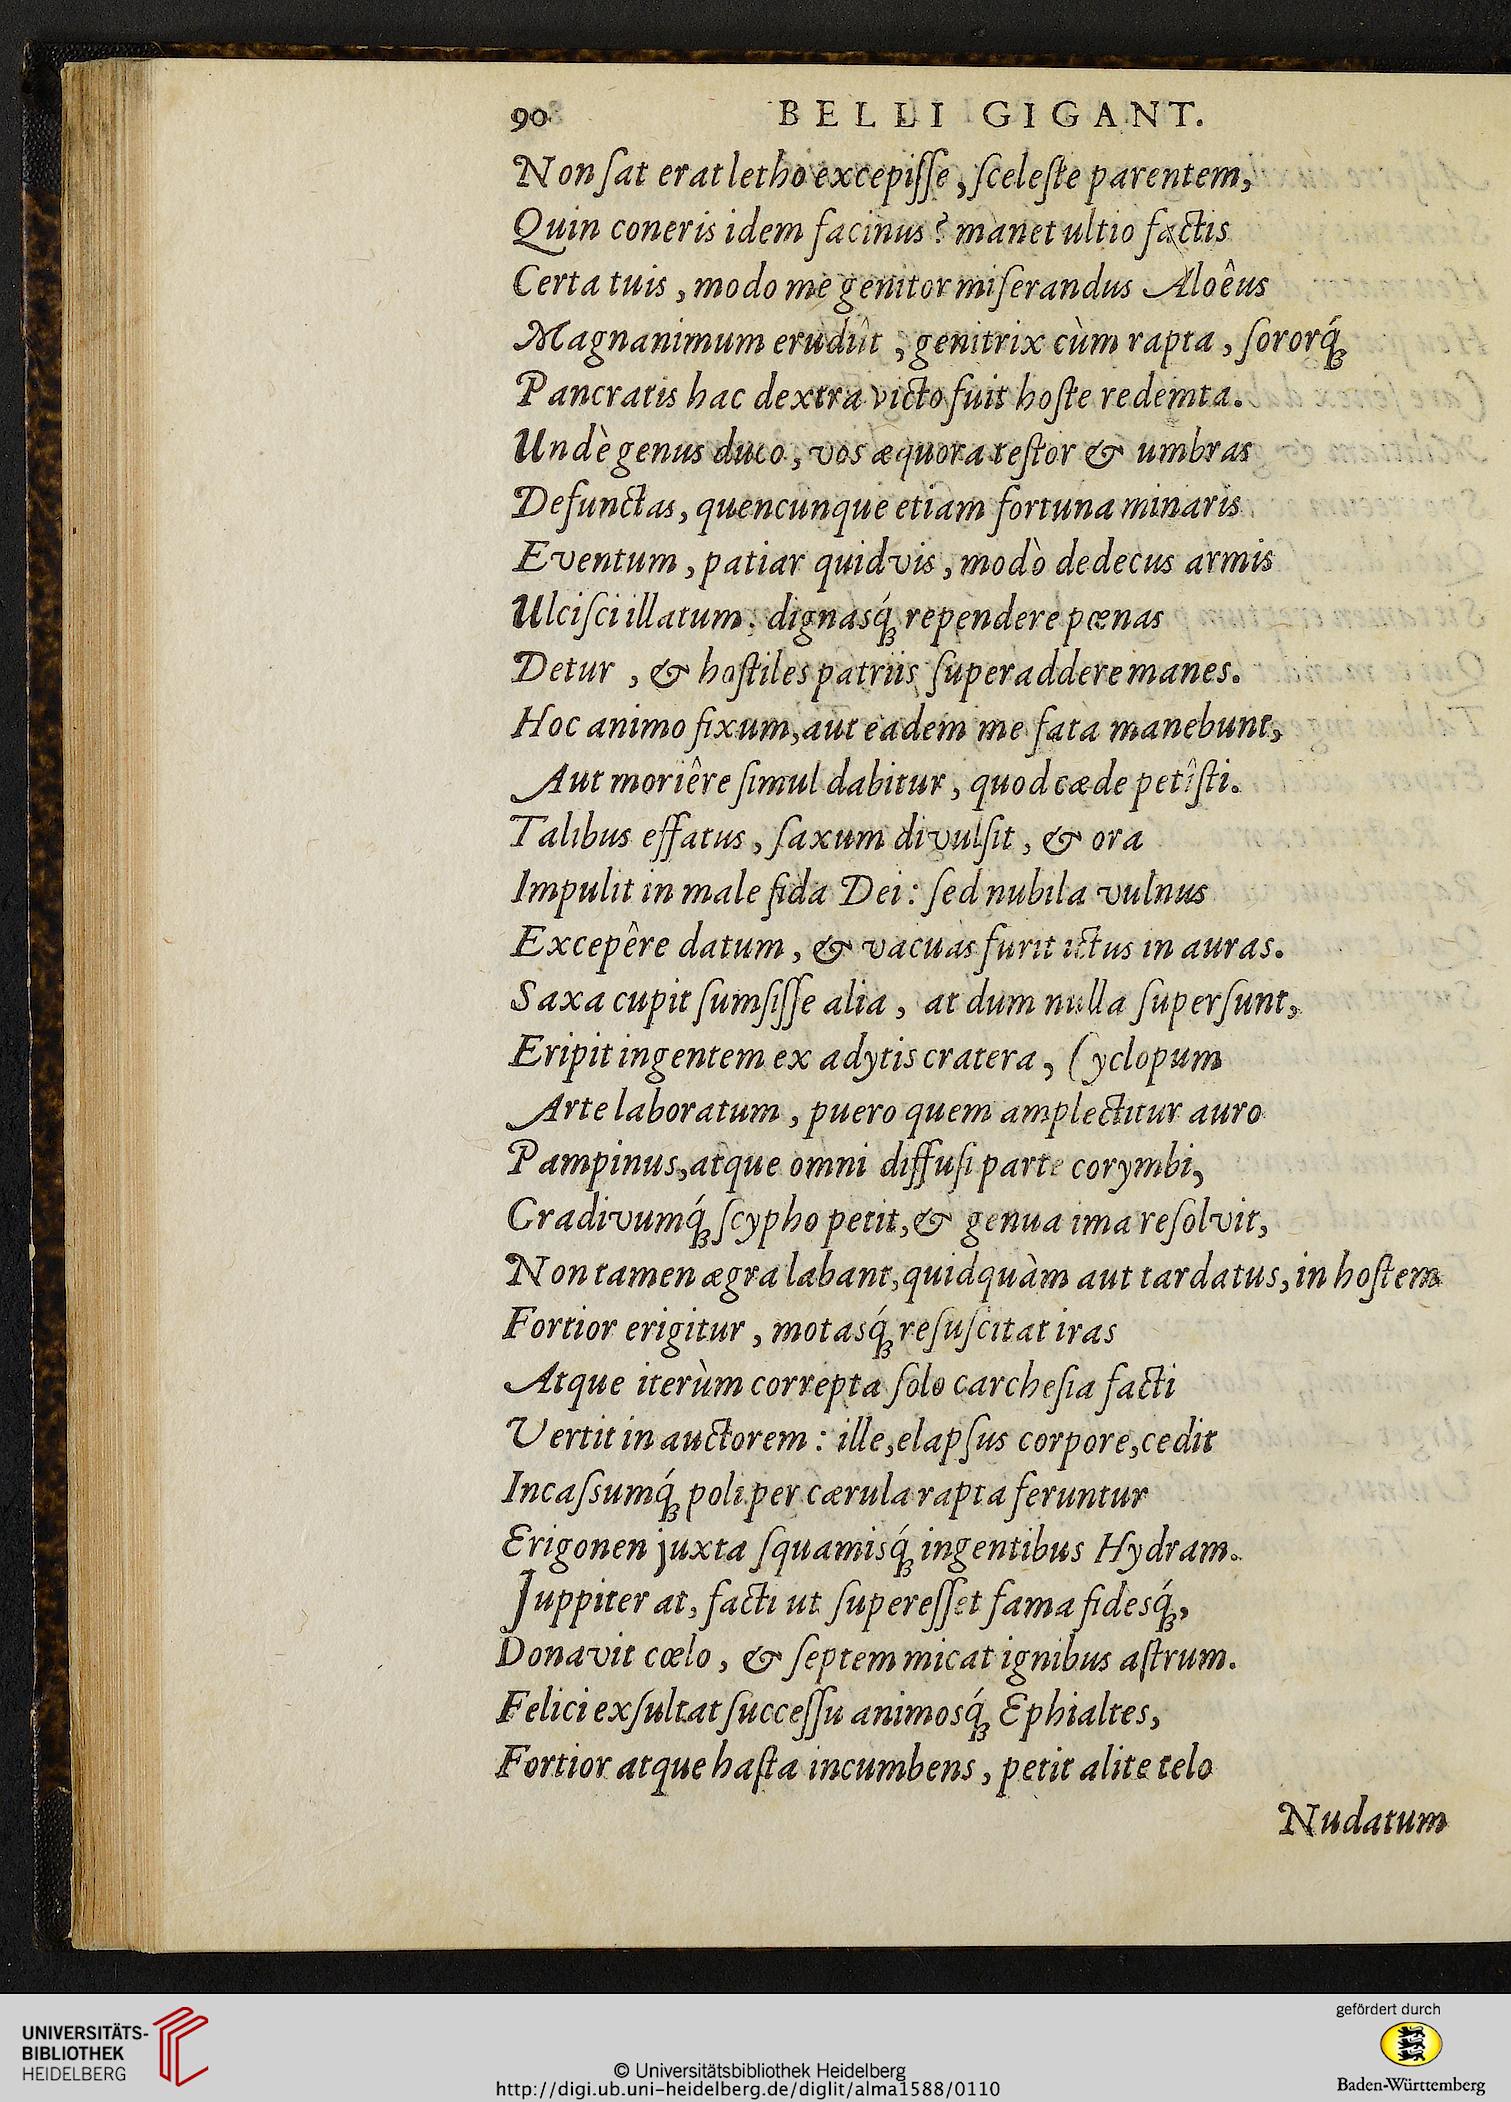 90 BELLI GIGANT.
Non ſat erat letho excepiſſe, ſceleſte parentem,
Quin coneris idem facinus? manet ultio factis
Certa tuis, modo me genitor miſerandus Aloêus
Magnanimum erudiit, genitrix cùm rapta, ſororq́ꝫ
Pancratis hac dextra victo fuit hoſte redemta.
Undè genus duco, vos æquora teſtor & umbras
Defunctas, quencunque etiam fortuna minaris
Eventum, patiar quidvis, modò dedecus armis
Ulciſci illatum: dignasq́ꝫ rependere pœnas
Detur, & hoſtiles patriis ſuperaddere manes.
Hoc animo fixum, aut eadem me fata manebunt,
Aut moriêre ſimul dabitur, quod cæde petîſti.
Talibus effatus, ſaxum divulſit, & ora
Impulit in male fida Dei: ſed nubila vulnus
Excepêre datum, & vacuas furit ictus in auras.
Saxa cupit ſumſiſſe alia, at dum nulla ſuperſunt,
Eripit ingentem ex adytis cratera, Cyclopum
Arte laboratum, puero quem amplectitur auro
Pampinus, atque omni diffuſi parte corymbi,
Gradivumq́ꝫ ſcypho petit, & genua ima reſolvit,
Non tamen ægra labant, quidquàm aut tardatus, in hoſtem
Fortior erigitur, motasq́ꝫ reſuſcitat iras
Atque iterùm correpta ſolo carcheſia facti
Vertit in auctorem: ille, elapſus corpore, cedit
Incaſsumq́ꝫ poli per cærula rapta feruntur
Erigonen juxta ſquamisq́ꝫ ingentibus Hydram.
Juppiter at, facti ut ſupereſſet fama fidesq́ꝫ,
Donavit cœlo, & ſeptem micat ignibus aſtrum.
Felici exſultat ſucceſſu animosq́ꝫ Ephialtes,
Fortior atque haſta incumbens, petit alite telo
Nudatum
UNIVERSITÄTS-
BIBLIOTHEK
HEIDELBERG
© Universitätsbibliothek Heidelberg
http://digi.ub.uni-heidelberg.de/diglit/alma1588/0110
gefördert durch
Baden-Württemberg